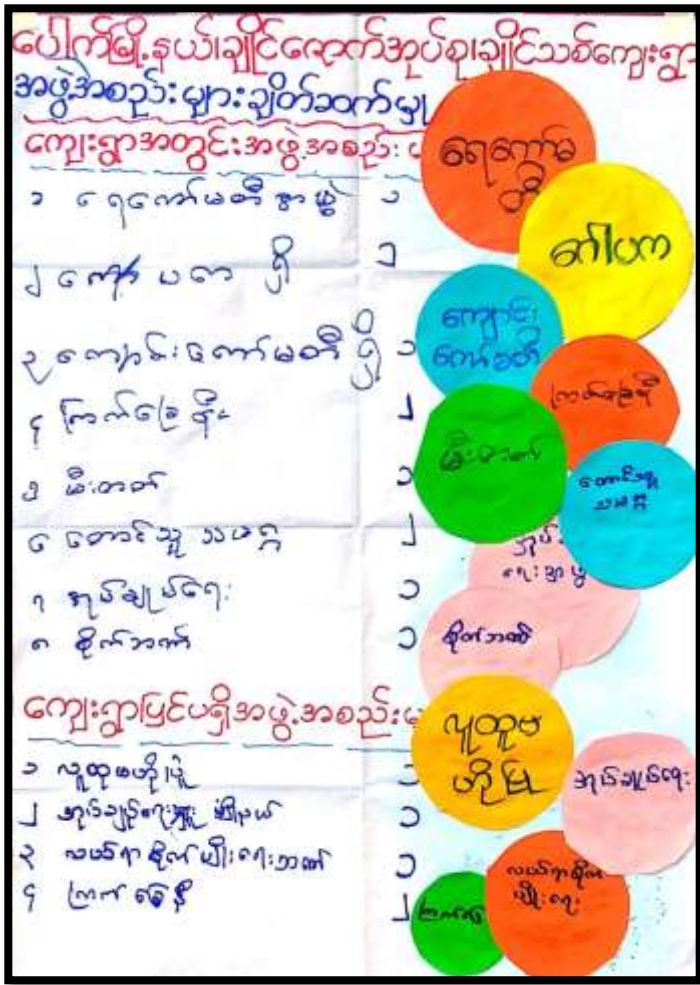 ပေါက်မြို့နယ်၊ချိုင်ဇောက်အုပ်စု၊ချိုင်သစ်ကျေးရွာ
အဖွဲ့အစည်းများချိတ်ဆက်မှု
ကျေးရွာအတွင်းအဖွဲ့အစည်း
၁ ရေကော်မတီ ၁
၂ ၂
၃ ကျောင်းကော်မတီ ရှိ ၁
၄ ကြက်ခြေနီ ၂
၅ မီးတတ် ၁
၆ တောင်သူ သမဂ္ဂ ၂
၇ အုပ်ချုပ်ရေး ၁
၈ စိုက်ဘဏ် ၁
ကျေးရွာပြင်ပရှိအဖွဲ့အစည်း
၁ လူထုဗဟိုပြု ၁
၂ အုပ်ချုပ်ရေး ၁
၃ လယ်ယာစိုက်ပျိုးရေးဘဏ် ၁
၄ ကြက်ခြေနီ ၂
ရေကော်မ
တီ
ဂေါပက
ကျောင်း
ကော်မတီ
ကြက်ခြေနီ
မီးတတ်
တောင်သူ
သမဂ္ဂ
စိုက်ဘဏ်
လူထုဗ
ဟိုပြု
အုပ်ချုပ်ရေး
လယ်ယာစိုက်
ပျိုးရေး